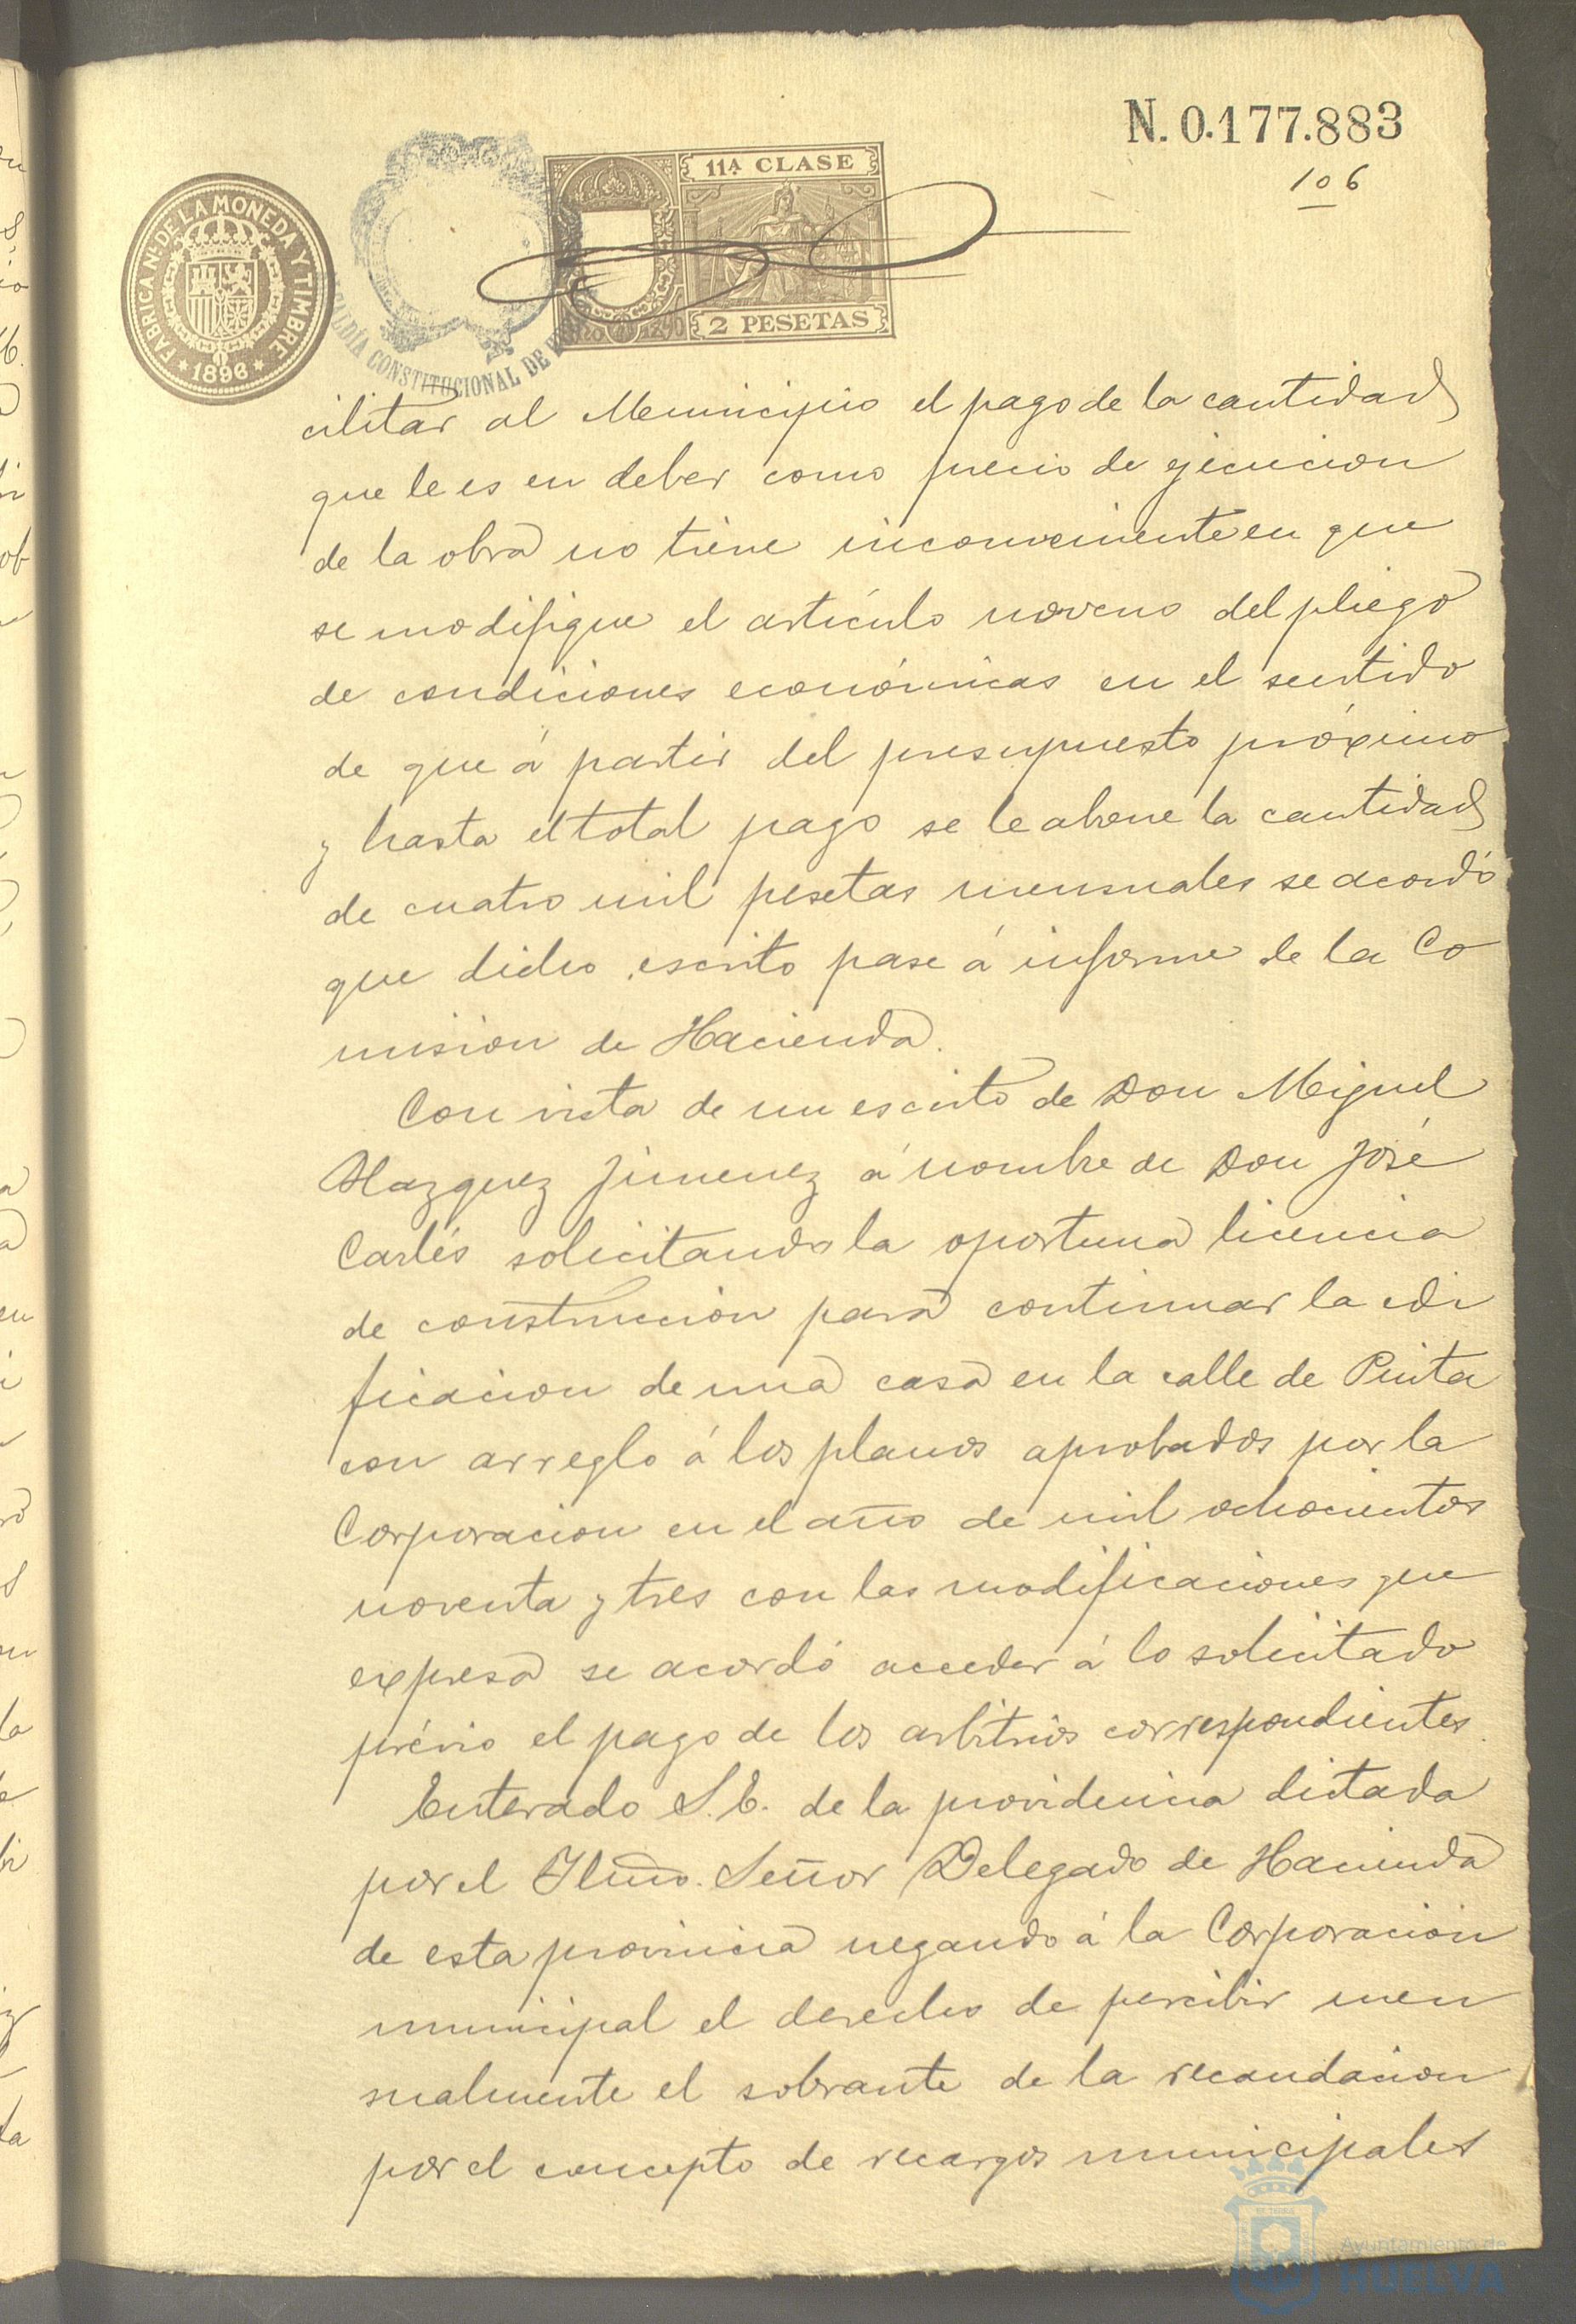 N. 0.177.883
106
FABRICA Nal DE LA MONEDA Y TIMBRE
* 1896 *
ALCALDÍA CONSTITUCIONAL DE
11ª CLASE
2 PESETAS
cilitar al Municipio el pago de la cantidad
que le es en deber como precio de ejecucion
de la obra no tiene inconveniente en que
se modifique el artículo noveno del pliego
de condiciones económicas en el sentido
de que á partir del presupuesto próximo
y hasta el total pago se le abone la cantidad
de cuatro mil pesetas mensuales se acordó
que dicho escrito pase á informe de la Co
mision de Hacienda.
Con vista de un escrito de Don Miguel
Vazquez Jimenez á nombre de Don José
Carlés solicitando la oportuna licencia
de construccion para continuar la edi
ficacion de una casa en la calle de Pinta
con arreglo á los planos aprobados por la
Corporacion en el año de mil ochocientos
noventa y tres con las modificaciones que
expresa se acordó acceder á lo solicitado
prévio el pago de los arbitrios correspondientes.
Enterado S. E. de la providencia dictada
por el Iltmo. Señor Delegado de Hacienda
de esta provincia negando á la Corporacion
municipal el derecho de percibir men
sualmente el sobrante de la recaudacion
por el concepto de recargos municipales
Ayuntamiento de
HUELVA